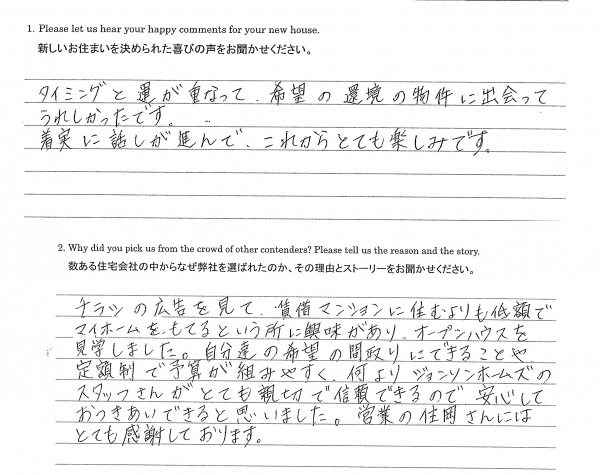 1. Please let us hear your happy comments for your new house.
新しいお住まいを決められた喜びの声をお聞かせください。
タイミングと運が重なって、希望の環境の物件に出会って
うれしかったです。
着実に話しが進んで、これからとても楽しみです。
2. Why did you pick us from the crowd of other contenders? Please tell us the reason and the story.
数ある住宅会社の中からなぜ弊社を選ばれたのか、その理由とストーリーをお聞かせください。
チラシの広告を見て、賃借マンションに住むよりも低額で
マイホームをもてるという所に興味があり、オープンハウスを
見学しました。自分達の希望の間取りにできることや
定額制で予算が組みやすく、何よりジョンソンホームズの
スタッフさんがとても親切で信頼できるので安心して
おつきあいできると思いました。営業の住岡さんには
とても感謝しております。